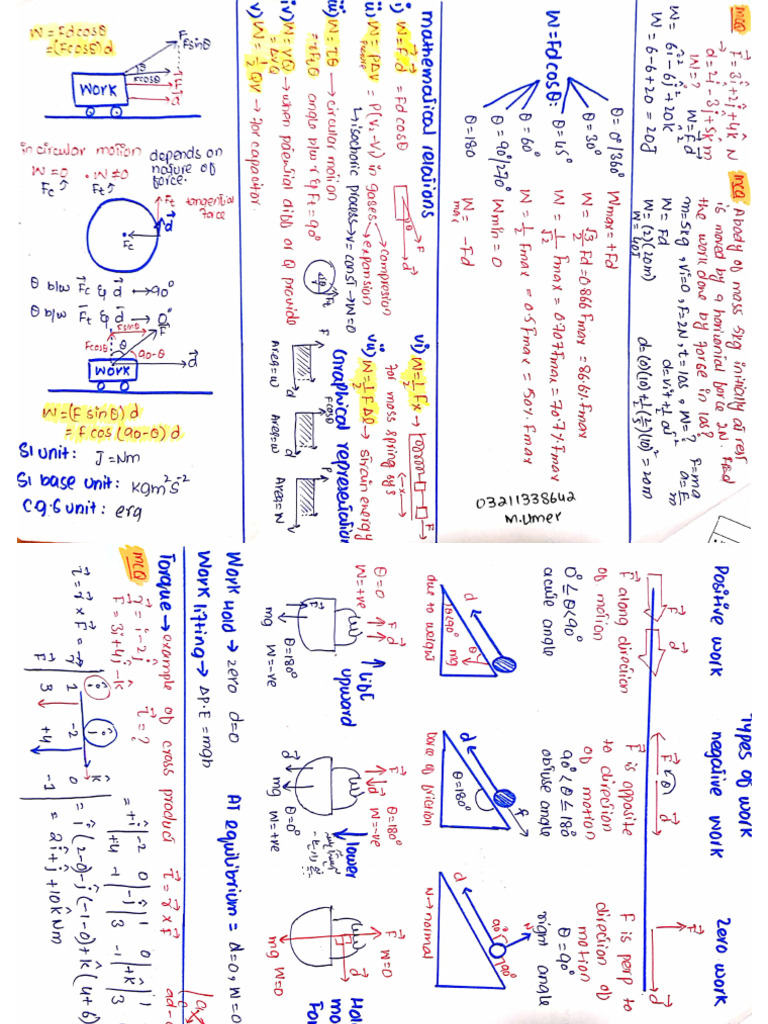 mcq F = 3i + 2j + 4k N
d = 2i - 3j + 5k m
W = ? W = F.d
W = 6i² - 6j² + 20k²
W = 6 - 6 + 20 = 20J
mcq A body of mass 5kg initially at rest
is moved by a horizontal force 2N. Find
the work done by force in 10s?
m=5kg, Vi=0, F=2N, t=10s, W=?
F=ma
a=F/m
W = Fd
d=vit+½at²
W=(2)(20m)
d=(0)(10)+½(2/5)(10)²=20m
W=40J
W=Fdcosθ:
θ=0°/360° Wmax=+Fd
θ=30° W = √3/2 Fd=0.866Fmax=86.6%Fmax
θ=45° W = 1/√2 Fmax=0.707Fmax=70.7%Fmax
θ=60° W = ½Fmax=0.5Fmax=50%Fmax
θ=90°/270° Wmin=0
θ=180 W = -Fd
max
03211338642
M.Umer
mathematical relations
i) W = F.d = Fdcosθ
ii) W = PΔV = P(V₂-V₁) in gases → compression
→ expansion
↳ isochoric process → V=const → W=0
iii) W = τθ → circular motion
= rFtθ angle b/w r & Ft = 90°
iv) W = VQ → when potential diff or Q provide
= ΔVQ
v) W = ½QV → for capacitor.
vi) W=½Fx →
for mass spring sys
vii) W=½FΔl → strain energy
Graphical representation
F
d
Area=W
Fcosθ
d
Area=W
P
V
Area=W
W=Fdcosθ
=(Fcosθ)d
F
Fsinθ
θ
Fcosθ
WORK
in circular motion
depends on
nature of
force.
W=0 • W≠0
Fc↑ Ft↑
Ft tangential
force
d
Fc
θ b/w Fc & d → 90°
θ b/w Ft & d → 0°
Fsinθ
F
Fcosθ
θ
90-θ
d
WORK
W=(Fsinθ)d
=Fcos(90-θ)d
SI unit: J=Nm
SI base unit: kgm²s⁻²
C.G.S unit: erg
Types of work
Positive work
negative work
zero work
F along direction
of motion
0°≤θ<90°
acute angle
F is opposite
to direction
of motion
90°<θ≤180°
obtuse angle
F is perp to
direction of
motion
θ=90°
right angle
d
θ<90° mg
due to weight
d
θ=180°
force of friction
d
90° 90°
N→normal
θ=0
W=+ve
F d
W
mg θ=180°
W=-ve
lift
upward
F θ=180°
d W=-ve
W
d
mg θ=0°
W=+ve
lower
F W=0
W
d
mg W=0
Work Hold → zero d=0
At equilibrium = d=0, W=0
Work lifting → ΔP.E = mgh
Torque → example of cross product τ = r × F
mcq r = i - 2j τ = ?
F = 3i + 4j - k
τ = r × F =
i j k
r 1 -2 0
F 3 +4 -1
= +i |-2 0| -j |1 0| +k |1
|+4 -1| |3 -1| |3
= i(2-0) - j(-1-0) + k(4+6)
= 2i + j + 10k Nm